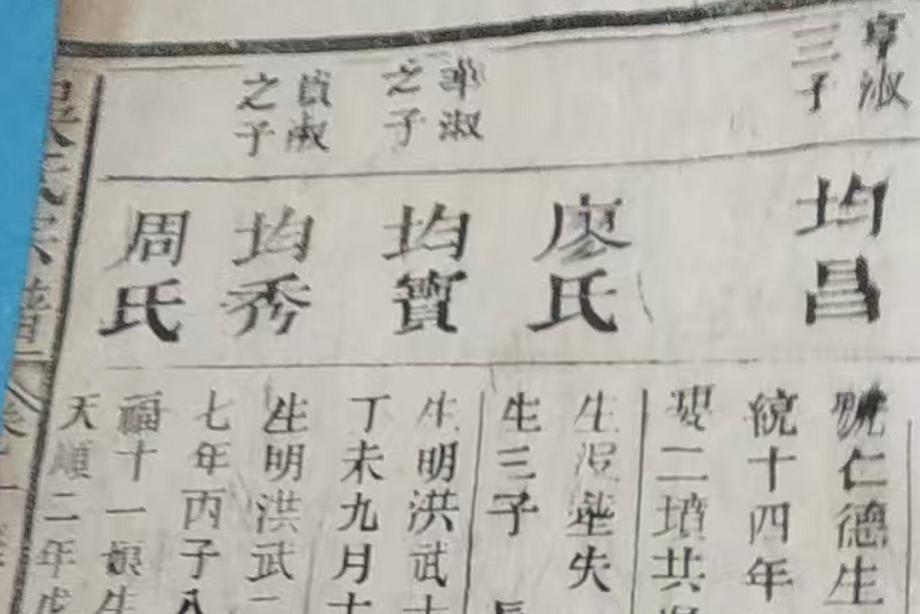 亨淑
三子
均昌
號仁德生
統十四年
娶二墳共
廖氏
生沒塟失
生三子 長
淑
之子
均寶
生明洪武十
丁未九月十
貞淑
之子
均秀
生明洪武二
七年丙子八
周氏
福十一娘生
天順二年戊